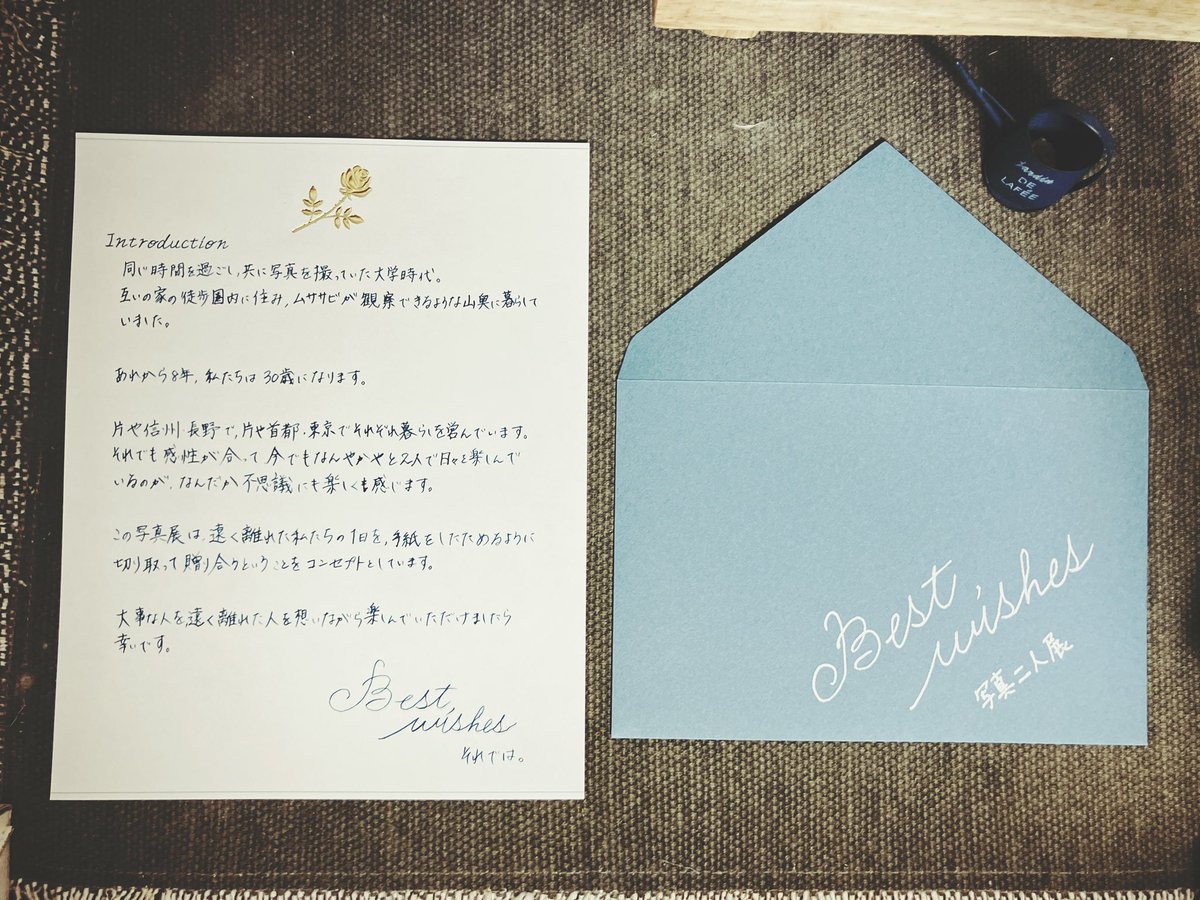 Introduction
同じ時間を過ごし、共に写真を撮っていた大学時代。
互いの家の徒歩圏内に住み、ムササビが観察できるような山奥に暮らして
いました。
あれから8年、私たちは30歳になります。
片や信州・長野で、片や首都・東京でそれぞれ暮らしを営んでいます。
それでも感性が合って今でもなんやかやと2人で日々を楽しんで
いるのが、なんだか不思議にも楽しくも感じます。
この写真展は、遠く離れた私たちの1日を、手紙をしたためるように
切り取って贈り合うということをコンセプトとしています。
大事な人を、遠く離れた人を想いながら楽しんでいただけましたら
幸いです。
Best
wishes
それでは。
Jardin
DE
LAFÉE
Best
wishes
写真二人展